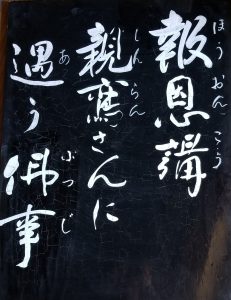 報恩講
ほうおんこう
親鸞さんに
しんらん
遇う佛事
あ ぶつじ